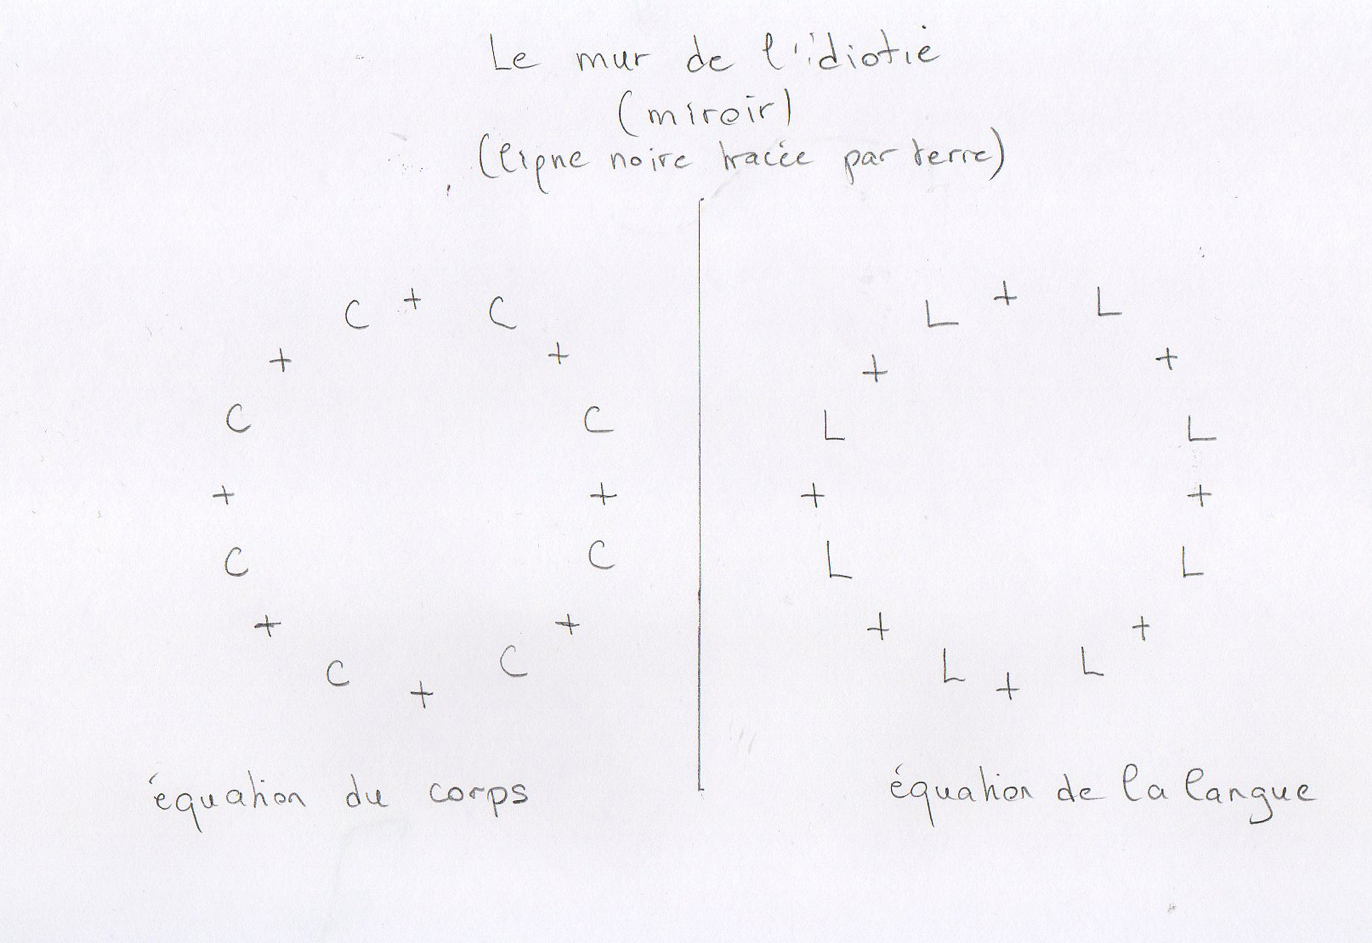 Le mur de l'idiotie
(miroir)
(ligne noire tracée par terre)
C + C
+ +
C C
+ +
C C
+ +
C + C
équation du corps
L + L
+ +
L L
+ +
L L
+ +
L + L
équation de la langue